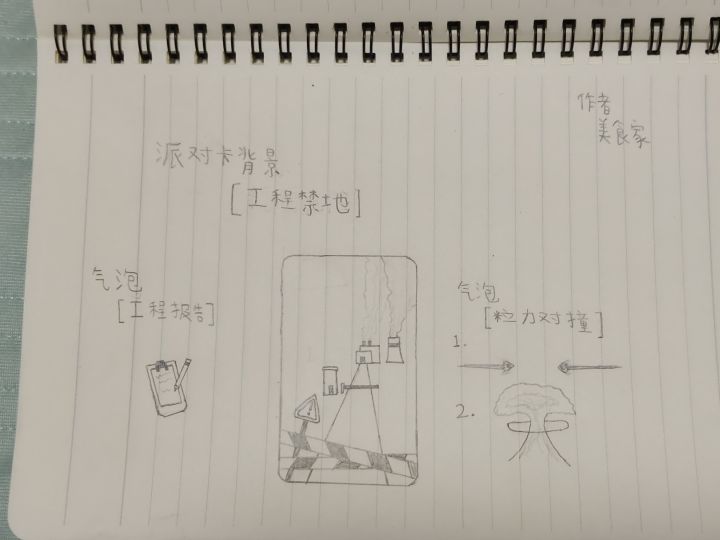 作者
美食家
派对卡背景
[工程禁地]
气泡
[工程报告]
气泡
[粒力对撞]
1.
2.